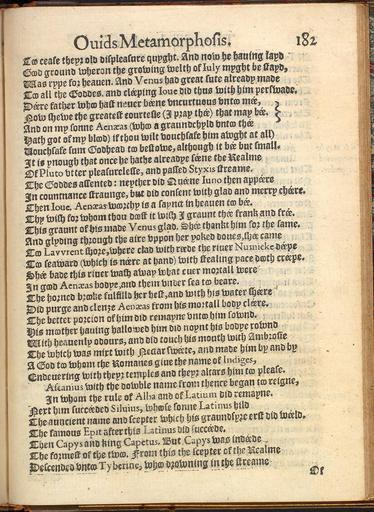 Ouids Metamorphosis. 182
To cease theyr old displeasure quyght. And now he hauing layd
Good ground wheron the growing welth of Iuly myght be stayd,
Was rype for heauen. And Venus had great sute already made
To all the Goddes. and cléeping Ioue did thus with him perswade.
Déere father who hast neuer béene vncurtuous vnto mée,
Now shewe the greatest courtesie (I pray thée) that may bée.
And on my sonne Aenæas (who a graundchyld vnto thée
Hath got of my blood) if thou wilt vouchsafe him awght at all)
Vouchsafe sum Godhead to bestowe, although it bée but small.
It is ynough that once he hathe alreadye séene the Realme
Of Pluto vtter pleasurelesse, and passed Styxis streame.
The Goddes assented: neyther did Quéene Iuno then appéere
In countnance straunge, but did consent with glad and merry chéere.
Then Ioue. Aenæas woorthy is a saynct in heauen to bée.
Thy wish for whom thou doost it wish I graunt thée frank and frée.
This graunt of his made Venus glad. Shée thankt him for the same.
And glyding through the aire vppon her yoked doues, shée came
To Lavvrent shore, where clad with réede the riuer Numicke déepe
To seaward (which is néere at hand) with stealing pace dooth créepe.
Shée bade this riuer wash away what euer mortall were
In good Aenæas bodye, and them vnder sea to beare.
The horned brooke fulfilld her hest, and with his water shéere
Did purge and clenze Aenæas from his mortall body cléere.
The better porcion of him did remayne vnto him sownd.
His moother hauing hallowed him did noynt his bodye rownd
With heauenly odours, and did touch his mouth with Ambrosie
The which was mixt with Nectar swéete, and made him by and by
A God to whom the Romanes giue the name of Indiges,
Endeuering with theyr temples and theyr altars him to please.
Ascanius with the dowble name from thence began to reigne,
In whom the rule of Alba and of Latium did remayne.
Next him succéeded Siluius, whose sonne Latinus hild
The auncient name and scepter which his graundsyre erst did wéeld.
The famous Epit after this Latinus did succéede.
Then Capys and king Capetus. But Capys was indéede
The formest of the twoo. From this the scepter of the Realme
Descended vnto Tyberine, who drowning in the streame
Of